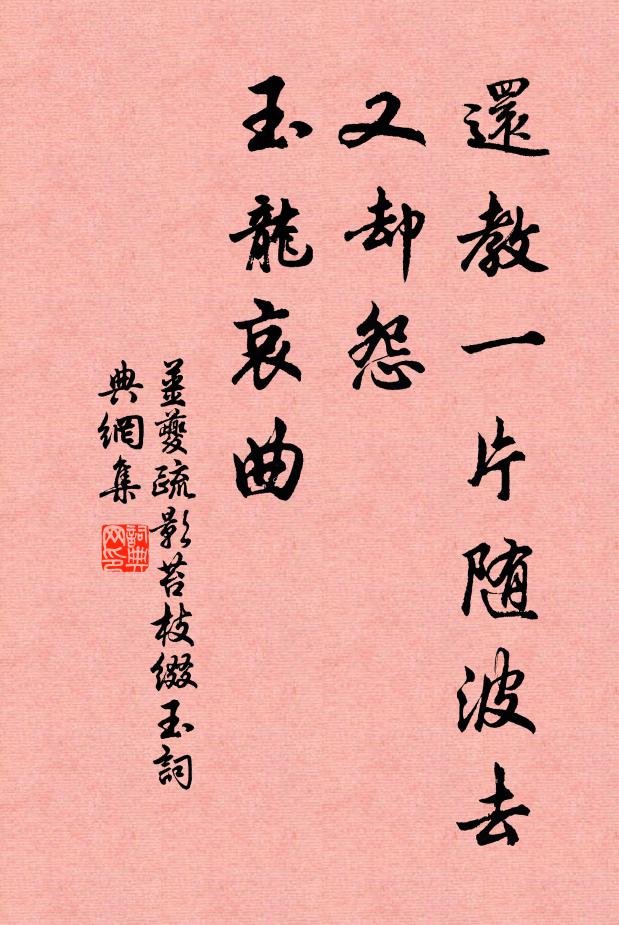 還教一片随波去
又却怨
玉龍哀曲
姜夔疏影苔枝綴玉詞
典網集
詞典网印